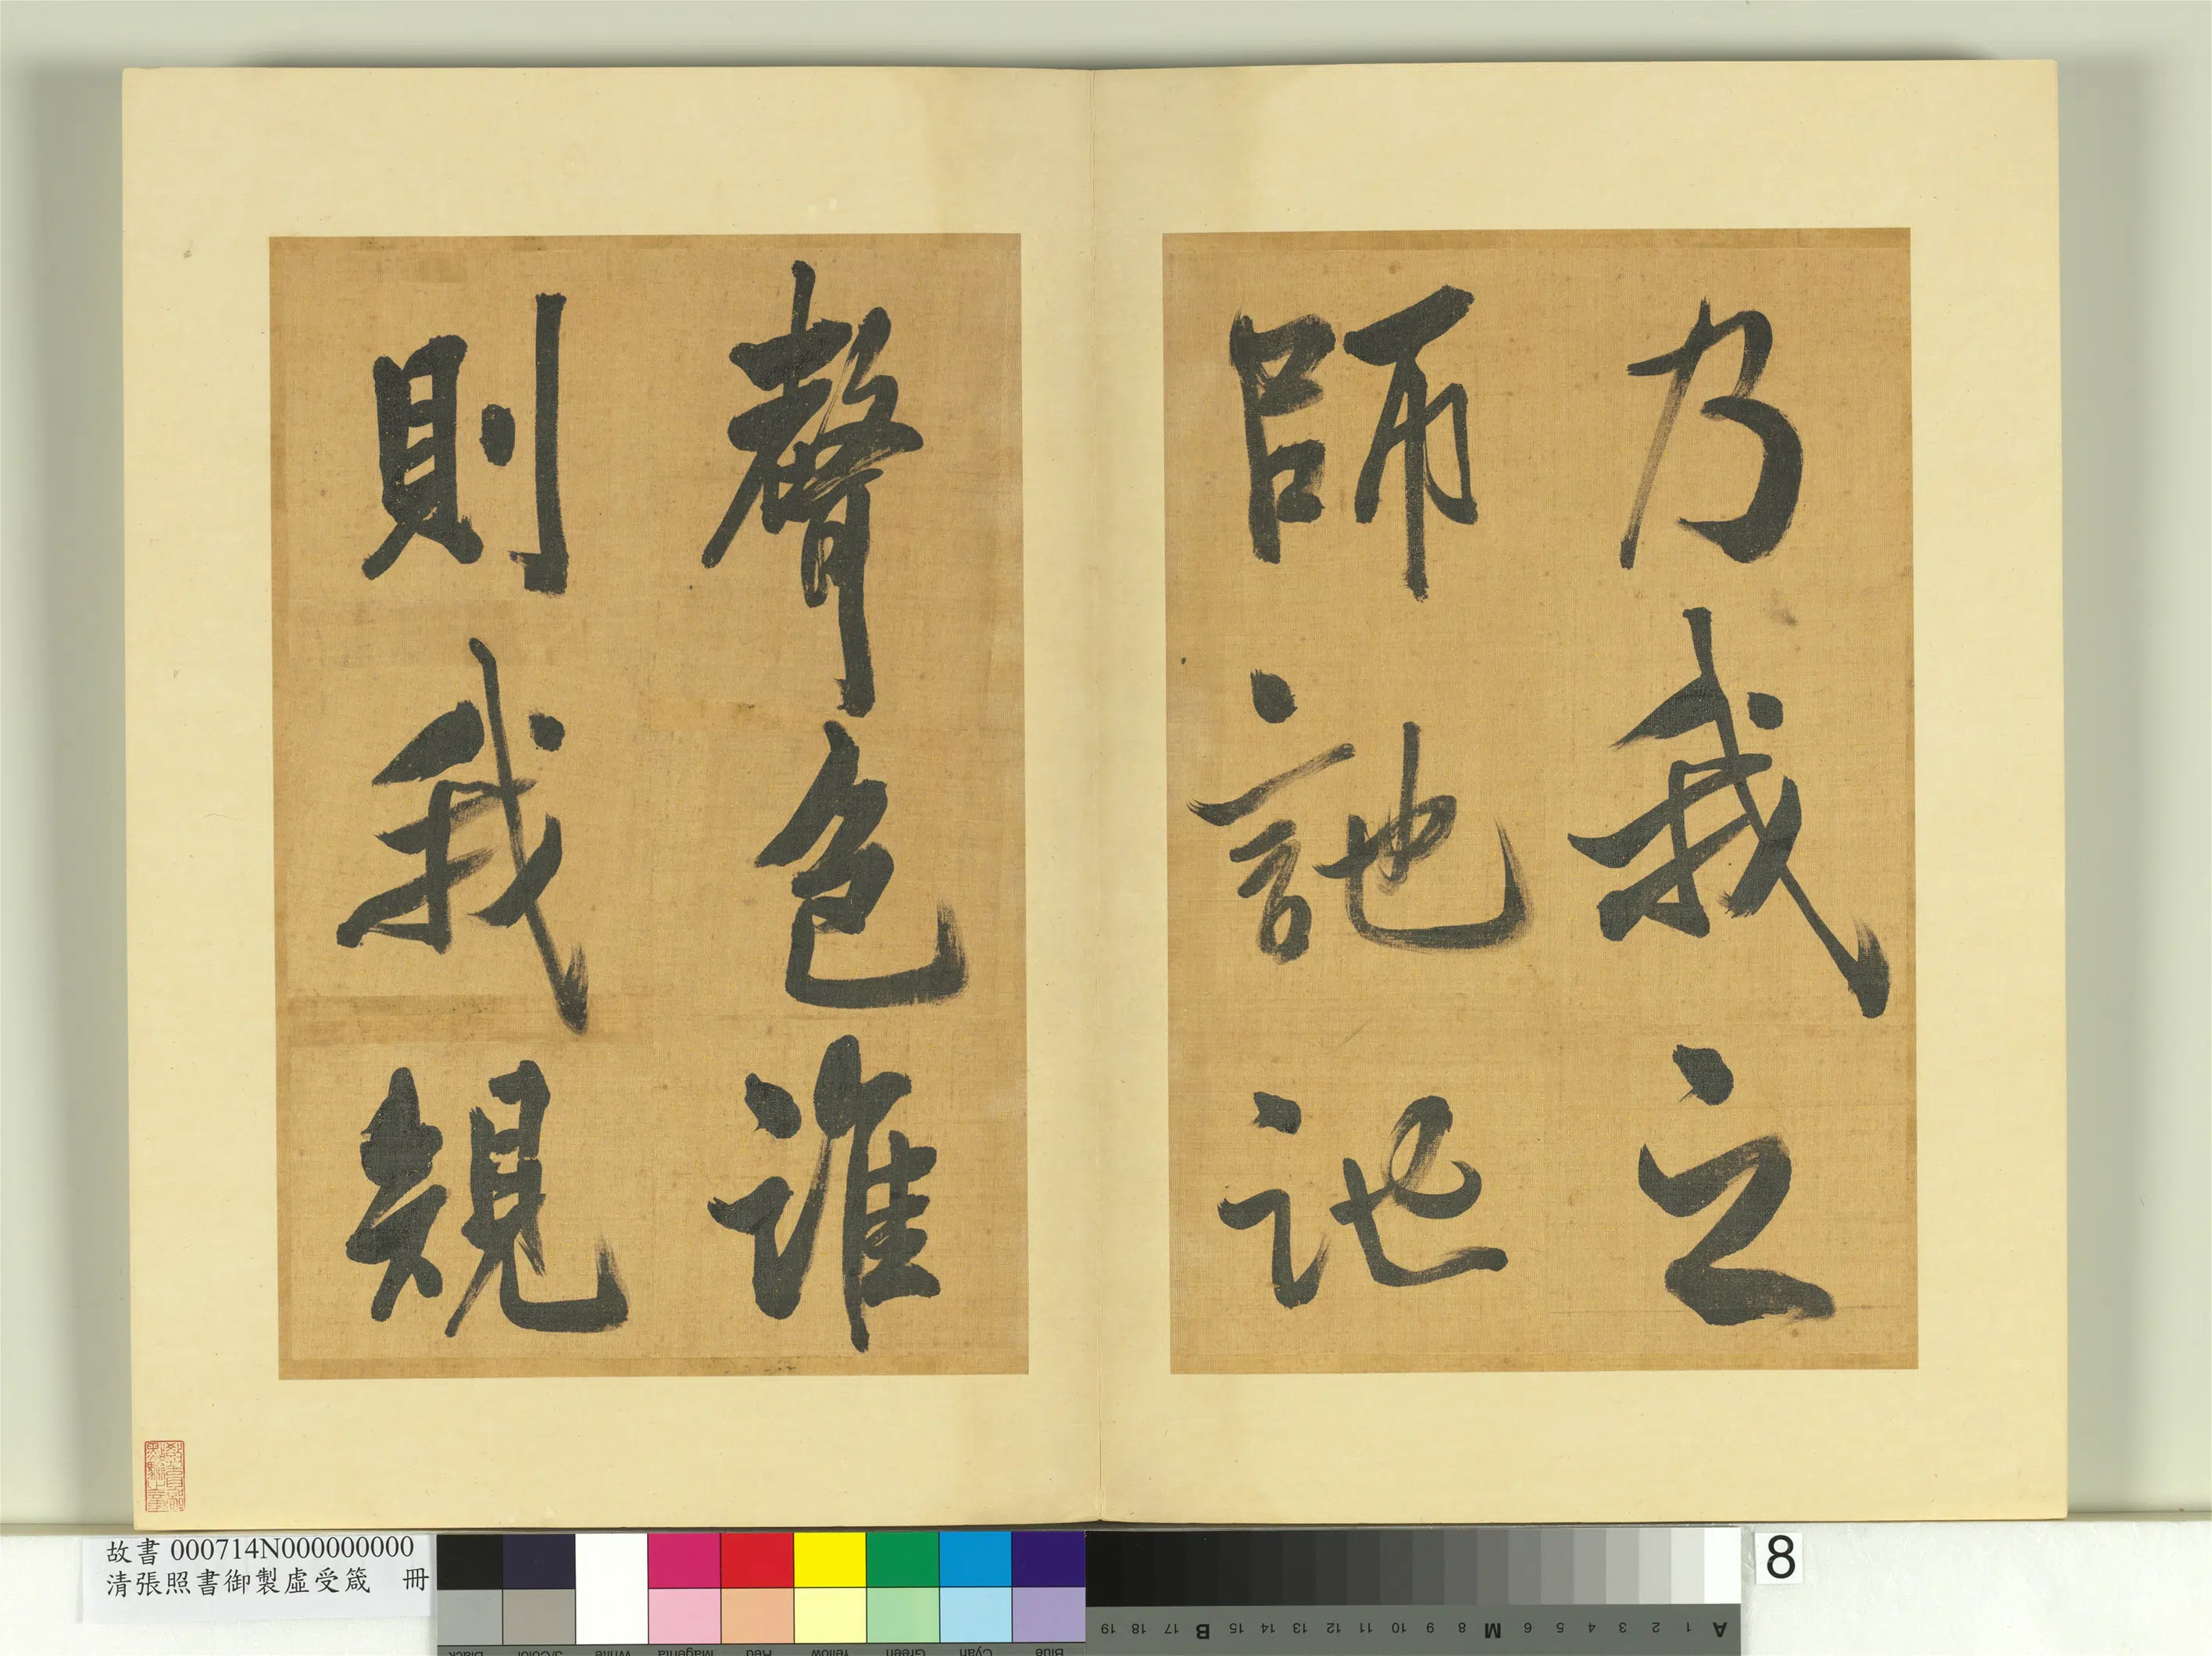 乃我之
師訑訑
聲色誰
則我規
故書 000714N000000000
清張照書御製虛受箴 冊
8
Black 3/Color White Magenta Red Yellow Green Cyan Blue
A 1 2 3 4 5 6 M 8 9 10 11 12 13 14 15 B 17 18 19